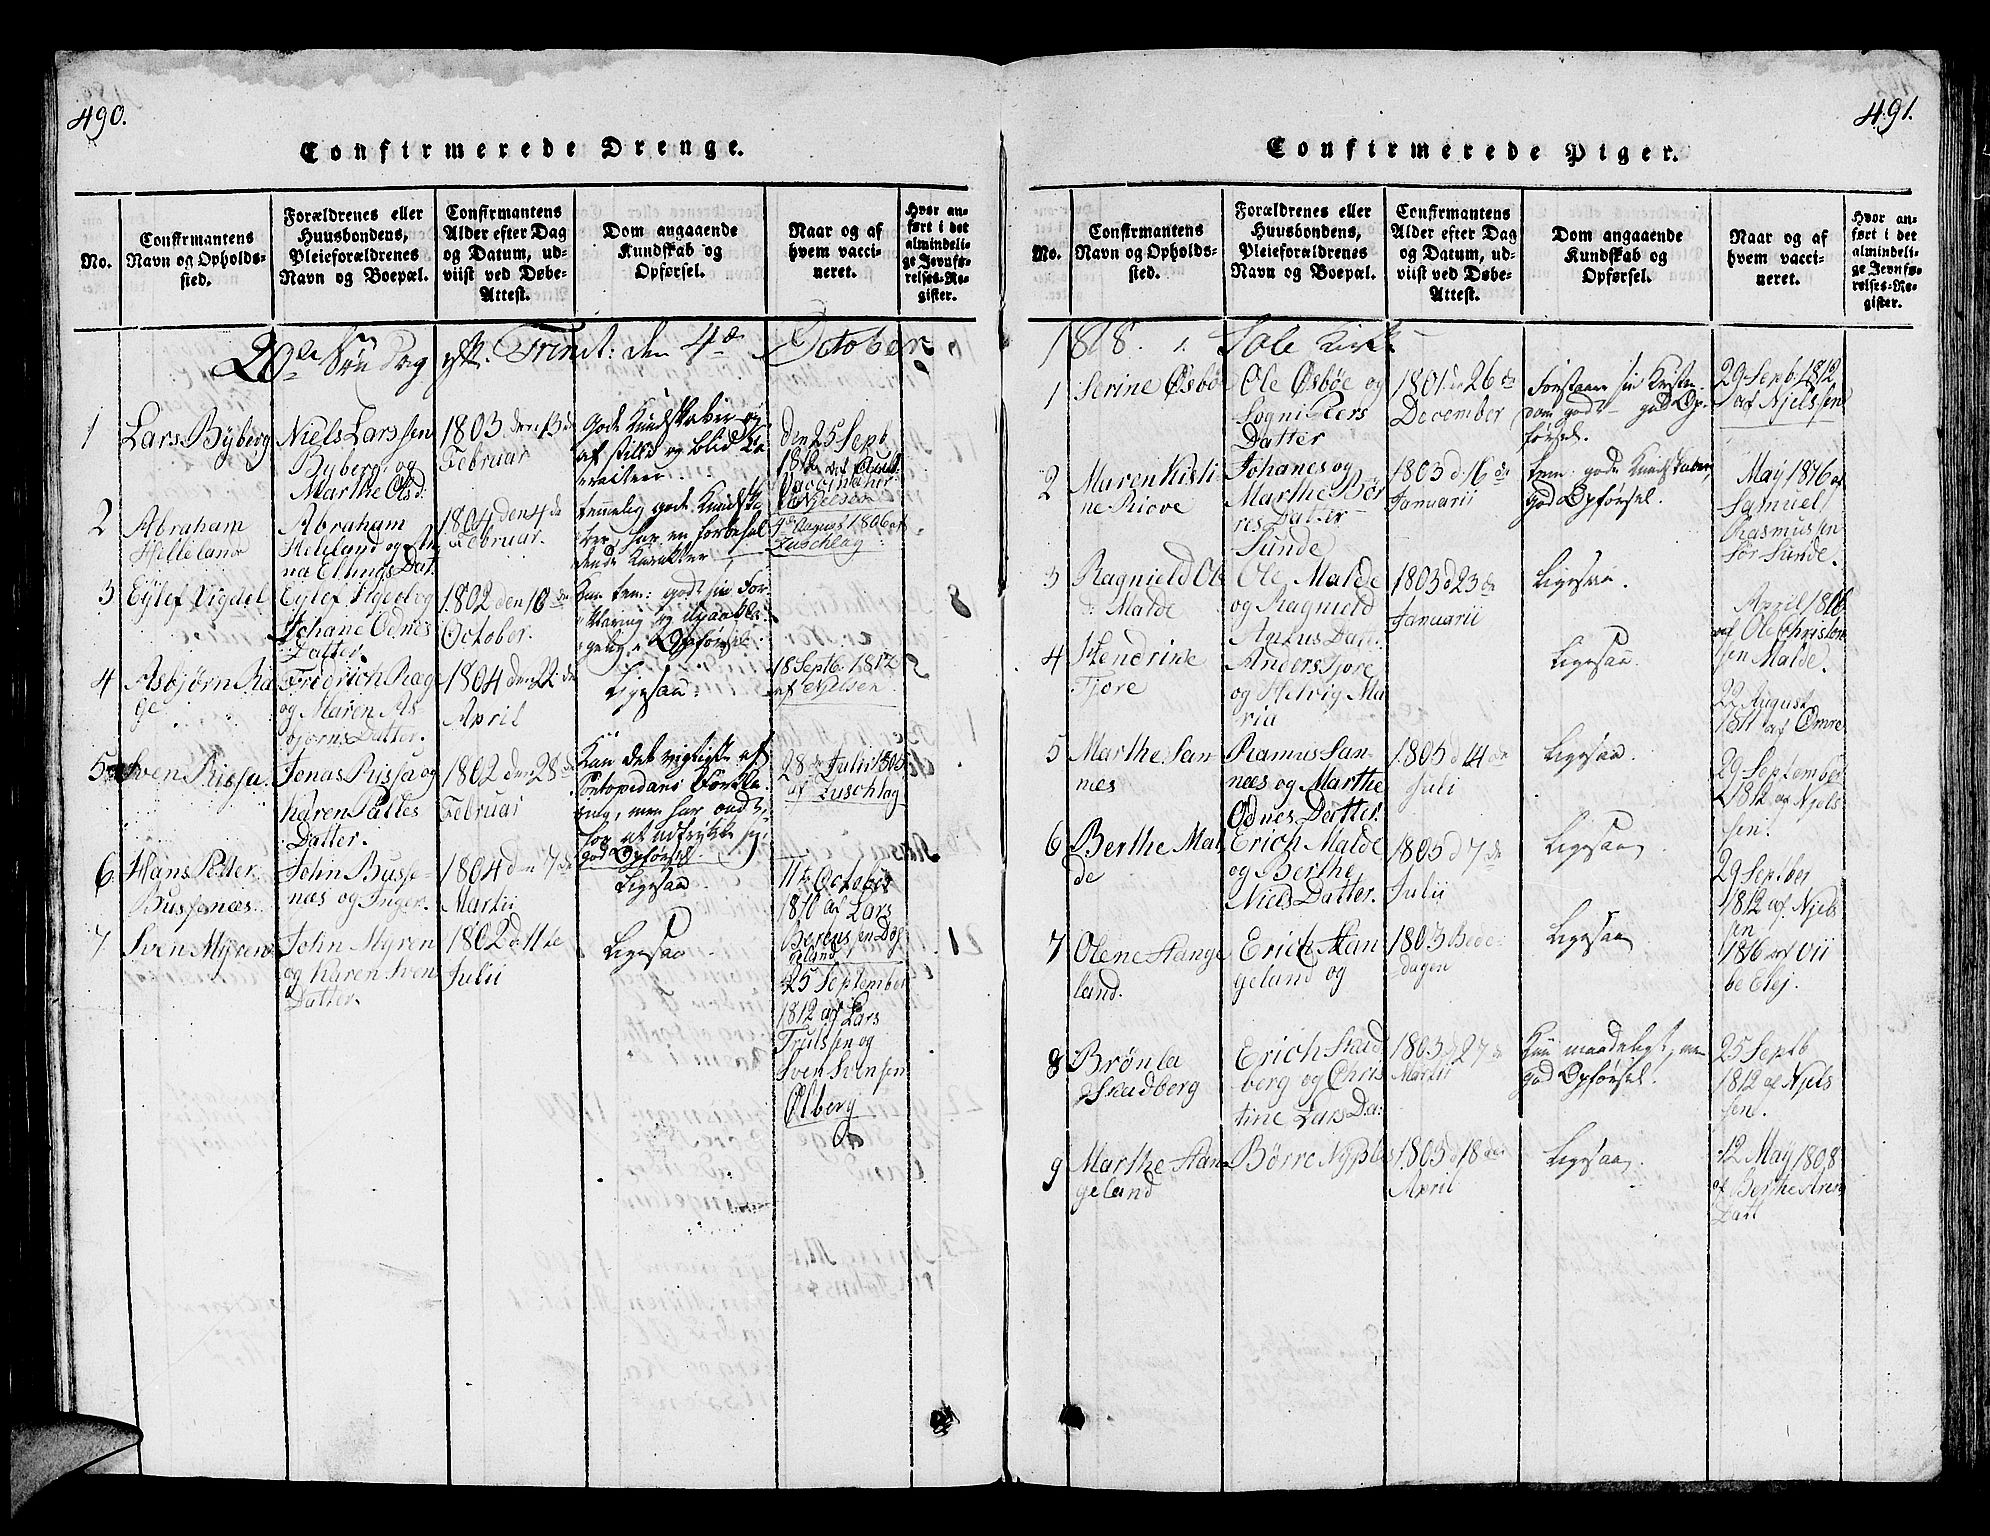 490.
Confirmerede Drenge.
No.
Confirmantens
Navn og Opholds-
sted.
Forældrenes eller
Huusbondens,
Pleieforældrenes
Navn og Boepæl.
Confirmantens
Alder efter Dag
og Datum, ud-
viist ved Døbe-
Attest.
Dom angaaende
Kundskab og
Opførsel.
Naar og af
hvem vacci-
neret.
Hvor an-
ført i det
almindeli-
ge Jevnfø-
relses-Re-
gister.
20de Søndag efter Trinit: den 4de October
1
Lars Byberg
Niels Larssen
Byberg og
Marthe Olsd.
1803 den 13de
Februar
gode Kundskaber og
af stille og blid Ca-
racter
den 25 Sept
1812 af
2
Abraham
Helleland
Abraham
Helleland og An
na Ellings Dat.
1804 den 4de
Februar.
temmelig gode Kundska-
ber, har en
dende Karakter
4de August 1806 af
Zuschlag
3
Eylef Vigdel
Eylef Vigdel og
Johane Odnes
Datter.
1802 den 10de
October.
Kan tem: godt sin For-
klaring og
Opførsel.
4
Asbjørn Ra
ge
Fredrich Rage
og Maren As
bjørns Datter.
1804 den 22de
April
Ligesaa
18 Septb. 1812
af Njelsen
5
Sven Rissa
Jonas Rissa og
Karen Palles
Datter.
1802 den 28de
Februar
Kan det vigtigste af
Pontopedans Forkla-
ring, men har ondt
for at udtrykke sig.
god Opførsel.
28de Julii
af Zuschlag
6
Hans Petter
Bussenæs.
John Busse-
næs og Inger.
1804 den 7de
Martii
Ligesaa
11te October
1810 af Lars
Berentsen Dog
geland
7
Sven Myren
John Myren
og Karen Sven
Datter.
1802 d 11te
Julii
Ligesaa
25 September
1812 af Lars
Trulssen og
Sven Svensen
Ølberg
491.
Confirmerede Piger.
No.
Confirmantens
Navn og Opholds-
sted.
Forældrenes eller
Huusbondens,
Pleieforældrenes
Navn og Boepæl.
Confirmantens
Alder efter Dag
og Datum, ud-
viist ved Døbe-
Attest.
Dom angaaende
Kundskab og
Opførsel.
Naar og af
hvem vacci-
neret.
Hvor an-
ført i det
almindeli-
ge Jevnfø-
relses-Re-
gister.
1818. i Sole Kirke
1
Serine Øsbø
Ole Øsbøe og
Sogni Peers
Datter
1801 d 26de
December
Forstaaer sin Kristen-
dom godt - god Op-
førsel.
29 Septb. 1812
af Njelssen
2
Maren Kisti
ne Risve
Johanes og
Marthe Bør
res Datter
Sunde
1803 d 16de
Januarii
tem: gode Kundskaber,
god Opførsel.
May 1816 af
Samuel
Rasmussen
Sør Sunde.
3
Ragnield Ols
d: Malde
Ole Malde
og Ragnield
Datt.
1803 d 23de
Januarii
Ligesaa.
April 1816
af Ole Christen
sen Malde.
4
Hendrine
Tjore
Anders Tjore
og Helvig Ma
ria
Ligesaa.
22 August
1811 af Omre
5
Marthe San
næs
Rasmus San-
næs og Marthe
Odnes Datter.
1803 d 14de
Juli
Ligesaa.
29 September
1812 af Njels
sen.
6
Berthe Mal
de
Erich Malde
og Berthe
Niels Datter.
1803 d 7de
Julii
Ligesaa
29 Septber
1812 af Njels
sen
7
Olene Stange
land.
Erich Stan
geland og
1803 Bede-
dagen
Ligesaa
1816 af Vii
be Elej.
8
Brønla
Skadberg
Erich Skad
berg og Chris
tine Lars Da:
1803 d 27de
Martii
Kun maadeligt, men
god Opførsel.
25 Septb
1812 af Njels
sen.
9
Marthe Stan
geland
Børre
1803 d 18de
April
Ligesaa
12 May 1808
af Berthe
Datt